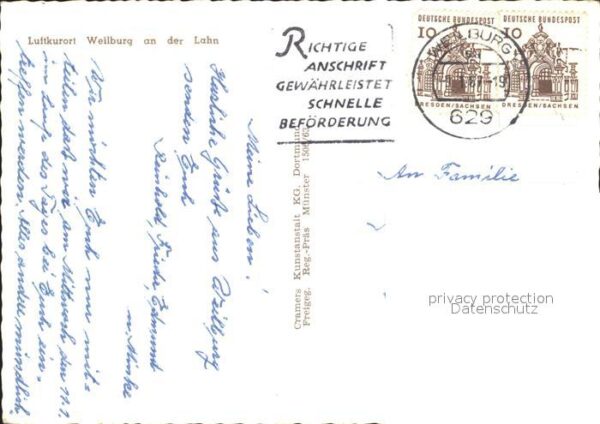 Luftkurort Weilburg an der Lahn
RICHTIGE
ANSCHRIFT
GEWÄHRLEISTET
SCHNELLE
BEFÖRDERUNG
DEUTSCHE BUNDESPOST
10
DRESDEN/SACHSEN
DEUTSCHE BUNDESPOST
10
DRESDEN/SACHSEN
WEILBURG
629
An Familie
privacy protection
Datenschutz
Cramers Kunstanstalt KG, Dortmund
Freigeg. Reg.-Präs Münster
Meine Lieben!
Herzliche Grüße aus Weilburg
senden Euch
Reinhold, Frieda, Edmund
u. Minke
Wir möchten Euch nun mit-
teilen daß wir am Mittwoch den 11.7.
im Laufe des Tages bei Euch ein-
treffen werden. Alles andere mündlich.